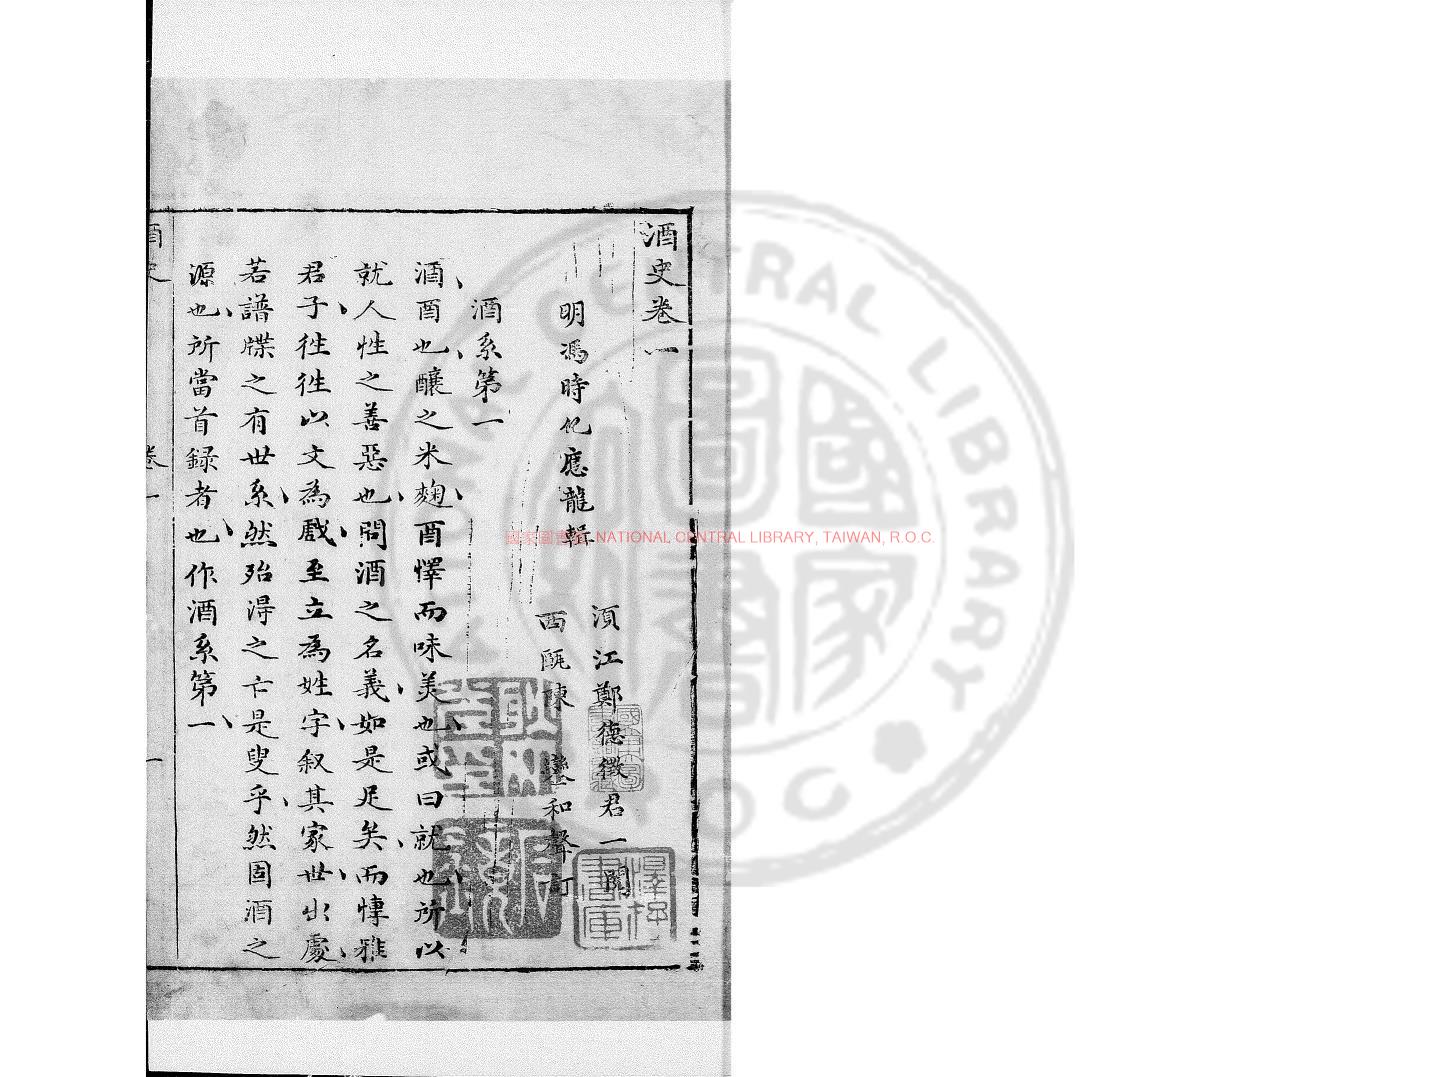 酒史卷一
明馮時化應龍輯
湏江鄭德徵君一閱
西甌陳 鑾和聲訂
酒系第一
酒酉也釀之米麴酉懌而味美也或曰就也所以
就人性之善惡也問酒之名義如是足矣而慱雅
君子徃徃以文為戲至立為姓字叙其家世出處
若譜牒之有世系然殆淂之亡是叟乎然固酒之
源也所當首録者也作酒系第一
酒史 卷一 一
國家圖書館 NATIONAL CENTRAL LIBRARY, TAIWAN, R.O.C.
NATIONAL CENTRAL LIBRARY R.O.C.
國家圖書館
擇是書庫